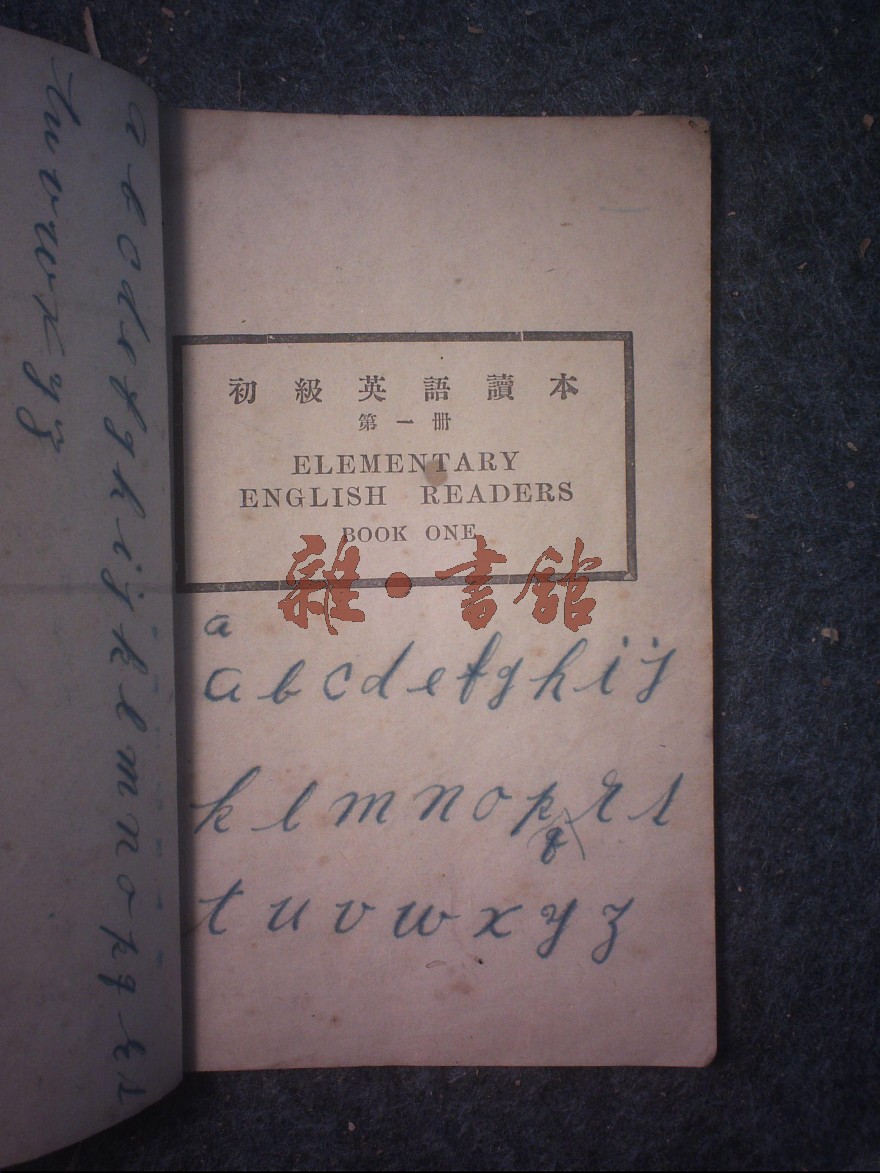 a b c d e f g h i j k l m n o p q r s
t u v w x y z
初級英語讀本
第一冊
ELEMENTARY
ENGLISH READERS
BOOK ONE
雜·書館
a
a b c d e f g h i j
k l m n o p q r s
t u v w x y z